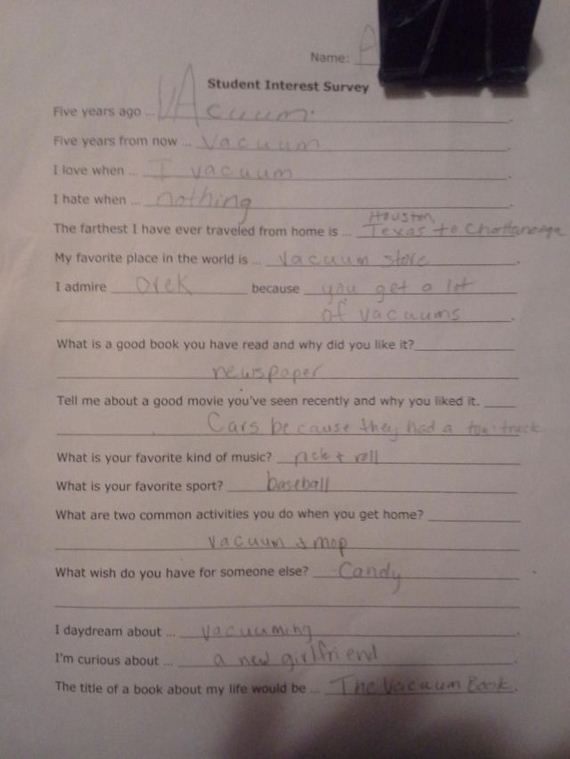 Name: A
Student Interest Survey
Five years ago ... VAcuum.
Five years from now ... vacuum.
I love when ... I vacuum.
I hate when ... nothing.
Houston,
The farthest I have ever traveled from home is ... Texas to Chattanooga
My favorite place in the world is ... vacuum store.
I admire orek because you get a lot
of vacuums.
What is a good book you have read and why did you like it?
newspaper
Tell me about a good movie you've seen recently and why you liked it.
Cars because they had a tow truck
What is your favorite kind of music? rock + roll
What is your favorite sport? baseball
What are two common activities you do when you get home?
vacuum & mop
What wish do you have for someone else? Candy
I daydream about ... vacuuming.
I'm curious about ... a new girlfriend.
The title of a book about my life would be ... The Vacuum Book.